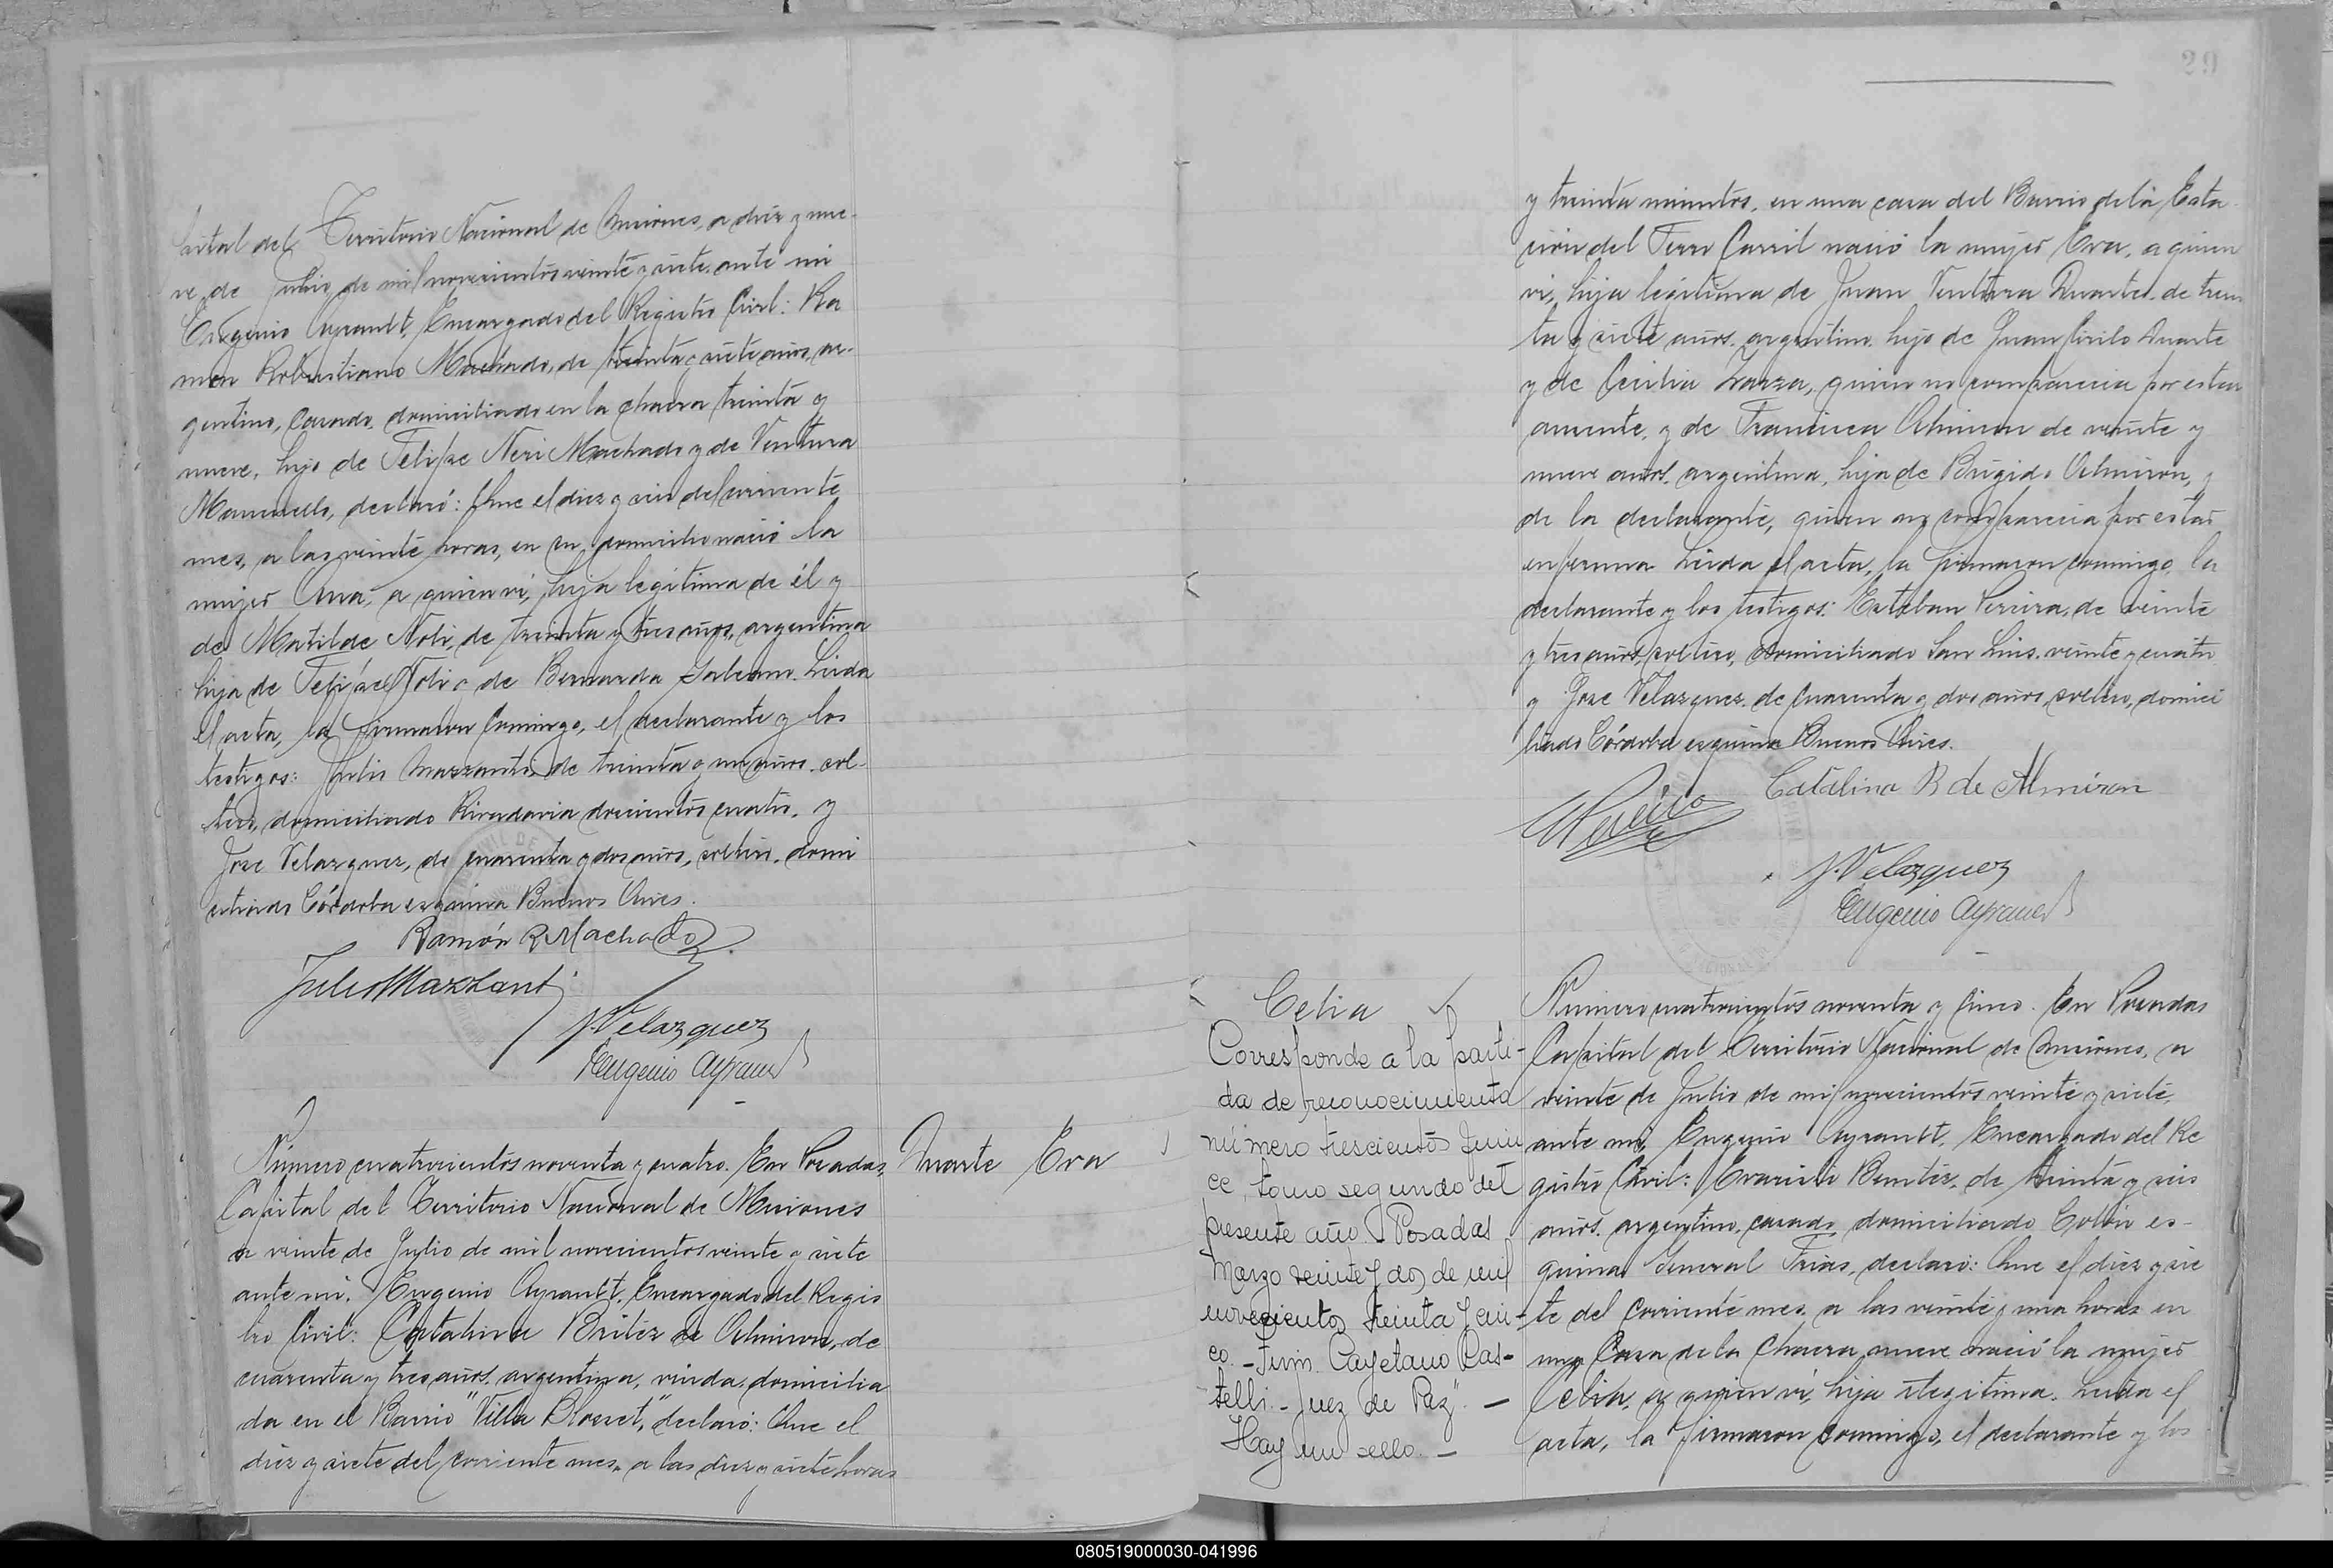 pital del Territorio Nacional de Misiones, a diez y nue-
ve de Julio de mil novecientos veinte y siete, ante mi
Eugenio Ayrault, Encargado del Registro Civil: Ra
mon Robustiano Machado, de treinta y siete años, ar-
gentino, casado, domiciliado en la chacra treinta y
nueve, hijo de Felipe Neri Machado y de Ventura
declaró: Que el diez y seis del corriente
mes, a las veinte horas, en su domicilio nació la
mujer Ana, a quien ví, hija legítima de él y
de Matilde Noli, de treinta y tres años, argentina
hija de Felipe Noli y de Bernarda Leida
el acta, la firmaron conmigo, el declarante y los
testigos: Julio Mazzanti, de treinta y un años, sol-
tero, domiciliado Rivadavia doscientos cuatro, y
Jose Velazquez, de cuarenta y dos años, soltero, domi
ciliado Córdoba esquina Buenos Aires.
Ramón R Machado
Julio Mazzanti
J. Velazquez
Eugenio Ayrault
Número cuatrocientos noventa y cuatro. En Posadas,
Duarte Eva
Capital del Territorio Nacional de Misiones
a veinte de Julio de mil novecientos veinte y siete
ante mí, Eugenio Ayrault, Encargado del Regis
tro Civil: Catalina Britez de Almiron, de
cuarenta y tres años, argentina, viuda, domicilia
da en el Barrio "Villa Blosset," declaró: Que el
diez y siete del corriente mes, a las diez y siete horas
29
y treinta minutos, en una casa del Barrio de la Esta
ción del Ferro Carril nació la mujer Eva, a quien
ví, hija legítima de Juan Ventura Duarte, de trein
ta y siete años, argentino, hijo de Juan Cirilo Duarte
y de Cecilia Zarza, quien no comparecia por estar
ausente, y de Francisca Almiron de veinte y
nueve años, argentina, hija de Brigido Almiron, y
de la declarante, quien no comparecia por estar
enferma Leida el acta, la firmaron conmigo, la
declarante y los testigos: Esteban Pereira, de veinte
y tres años, soltero, domiciliado San Luis veinte y cuatro
y Jose Velazquez, de cuarenta y dos años, soltero, domici
liado Córdoba esquina Buenos Aires.
Catalina B de Almiron
J. Velazquez
Eugenio Ayrault
Celia
Corresponde a la parti-
da de reconocimiento
número trescientos quin
ce, tomo segundo del
presente año. Posadas
Marzo veinte y dos de mil
novecientos treinta y cin-
co. - Juan Cayetano Cas-
telli - Juez de Paz". —
Hay un sello. —
Número cuatrocientos noventa y cinco. En Posadas
Capital del Territorio Nacional de Misiones, a
veinte de Julio de mil novecientos veinte y siete,
ante mí, Eugenio Ayrault, Encargado del Re
gistro Civil: Evaristo Benitez, de treinta y seis
años, argentino, casado, domiciliado Colón es-
quina General Frias, declaró: Que el diez y sie
te del corriente mes, a las veinte y una horas en
una Casa de la Chacra nueve nació la mujer
Celia, a quien ví, hija ilegítima. Leida el
acta, la firmaron conmigo, el declarante y los
080519000030-041996